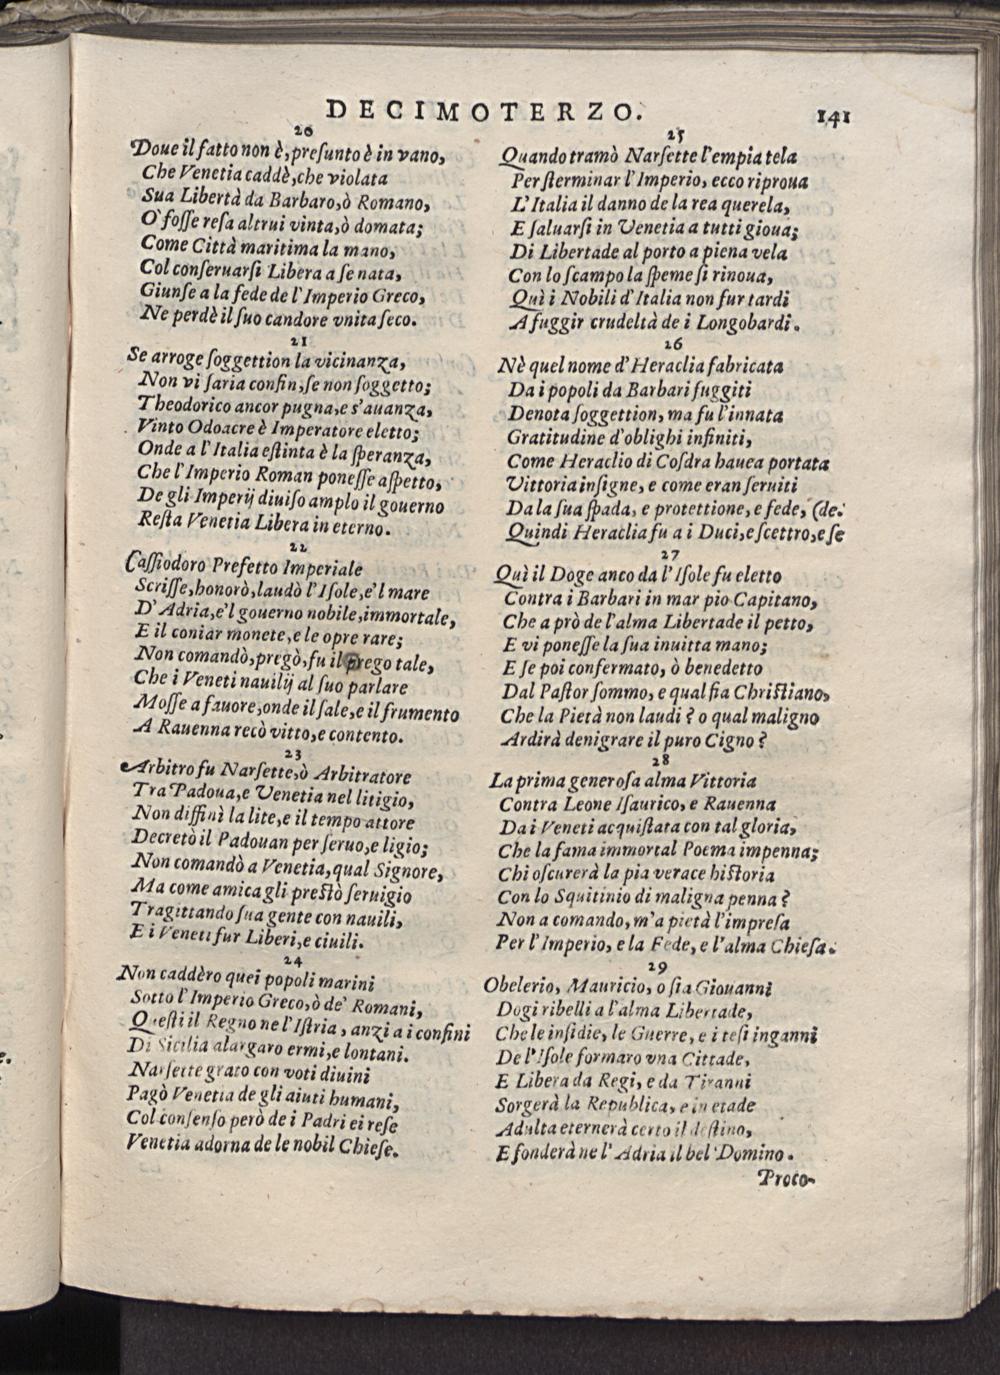 DECIMOTERZO. 141
20
Doue il fatto non è, preſunto è in vano,
Che Venetia caddè, che violata
Sua Libertà da Barbaro, ò Romano,
O' foſſe reſa altrui vinta, ò domata;
Come Città maritima la mano,
Col conſeruarſi Libera a ſe nata,
Giunſe a la fede de l'Imperio Greco,
Ne perdè il ſuo candore vnita ſeco.
21
Se arroge ſoggettion la vicinanza,
Non vi ſaria confin, ſe non ſoggetto;
Theodorico ancor pugna, e s'auanza,
Vinto Odoacre è Imperatore eletto;
Onde a l'Italia eſtinta è la ſperanza,
Che l'Imperio Roman poneſſe aſpetto,
De gli Imperij diuiſo amplo il gouerno
Reſta Venetia Libera in eterno.
22
Caſſiodoro Prefetto Imperiale
Scriſſe, honorò, laudò l'Iſole, e'l mare
D'Adria, e'l gouerno nobile, immortale,
E il coniar monete, e le opre rare;
Non comandò, pregò, fu il prego tale,
Che i Veneti nauilij al ſuo parlare
Moſſe a fauore, onde il ſale, e il frumento
A Rauenna recò vitto, e contento.
23
Arbitro fu Narſette, ò Arbitratore
Tra Padoua, e Venetia nel litigio,
Non diffinì la lite, e il tempo attore
Decretò il Padouan per ſeruo, e ligio;
Non comandò a Venetia, qual Signore,
Ma come amica gli preſtò ſeruigio
Tragittando ſua gente con nauili,
E i Veneti fur Liberi, e ciuili.
24
Non caddèro quei popoli marini
Sotto l'Imperio Greco, ò de' Romani,
Queſti il Regno ne l'Iſtria, anzi a i confini
Di Sicilia alargaro ermi, e lontani.
Narſette grato con voti diuini
Pagò Venetia de gli aiuti humani,
Col conſenſo però de i Padri ei reſe
Venetia adorna de le nobil Chieſe.
25
Quando tramò Narſette l'empia tela
Per ſterminar l'Imperio, ecco riproua
L'Italia il danno de la rea querela,
E ſaluarſi in Venetia a tutti gioua;
Di Libertade al porto a piena vela
Con lo ſcampo la ſpeme ſi rinoua,
Quì i Nobili d'Italia non fur tardi
A fuggir crudeltà de i Longobardi.
26
Nè quel nome d'Heraclia fabricata
Da i popoli da Barbari fuggiti
Denota ſoggettion, ma fu l'innata
Gratitudine d'oblighi infiniti,
Come Heraclio di Coſdra hauea portata
Vittoria inſigne, e come eran ſeruiti
Da la ſua ſpada, e protettione, e fede, (de.
Quindi Heraclia fu a i Duci, e ſcettro, e ſe
27
Quì il Doge anco da l'Iſole fu eletto
Contra i Barbari in mar pio Capitano,
Che a prò de l'alma Libertade il petto,
E vi poneſſe la ſua inuitta mano;
E ſe poi confermato, ò benedetto
Dal Paſtor ſommo, e qual ſia Chriſtiano,
Che la Pietà non laudi? o qual maligno
Ardirà denigrare il puro Cigno?
28
La prima generoſa alma Vittoria
Contra Leone Iſaurico, e Rauenna
Da i Veneti acquiſtata con tal gloria,
Che la fama immortal Poema impenna;
Chi oſcurerà la pia verace hiſtoria
Con lo Squitinio di maligna penna?
Non a comando, m'a pietà l'impreſa
Per l'Imperio, e la Fede, e l'alma Chieſa.
29
Obelerio, Mauricio, o ſia Giouanni
Dogi ribelli a l'alma Libertade,
Che le inſidie, le Guerre, e i teſi inganni
De l'Iſole formaro vna Cittade,
E Libera da Regi, e da Tiranni
Sorgerà la Republica, e in etade
Adulta eternerà certo il deſtino,
E fonderà ne l'Adria il bel Domino.
Proto-